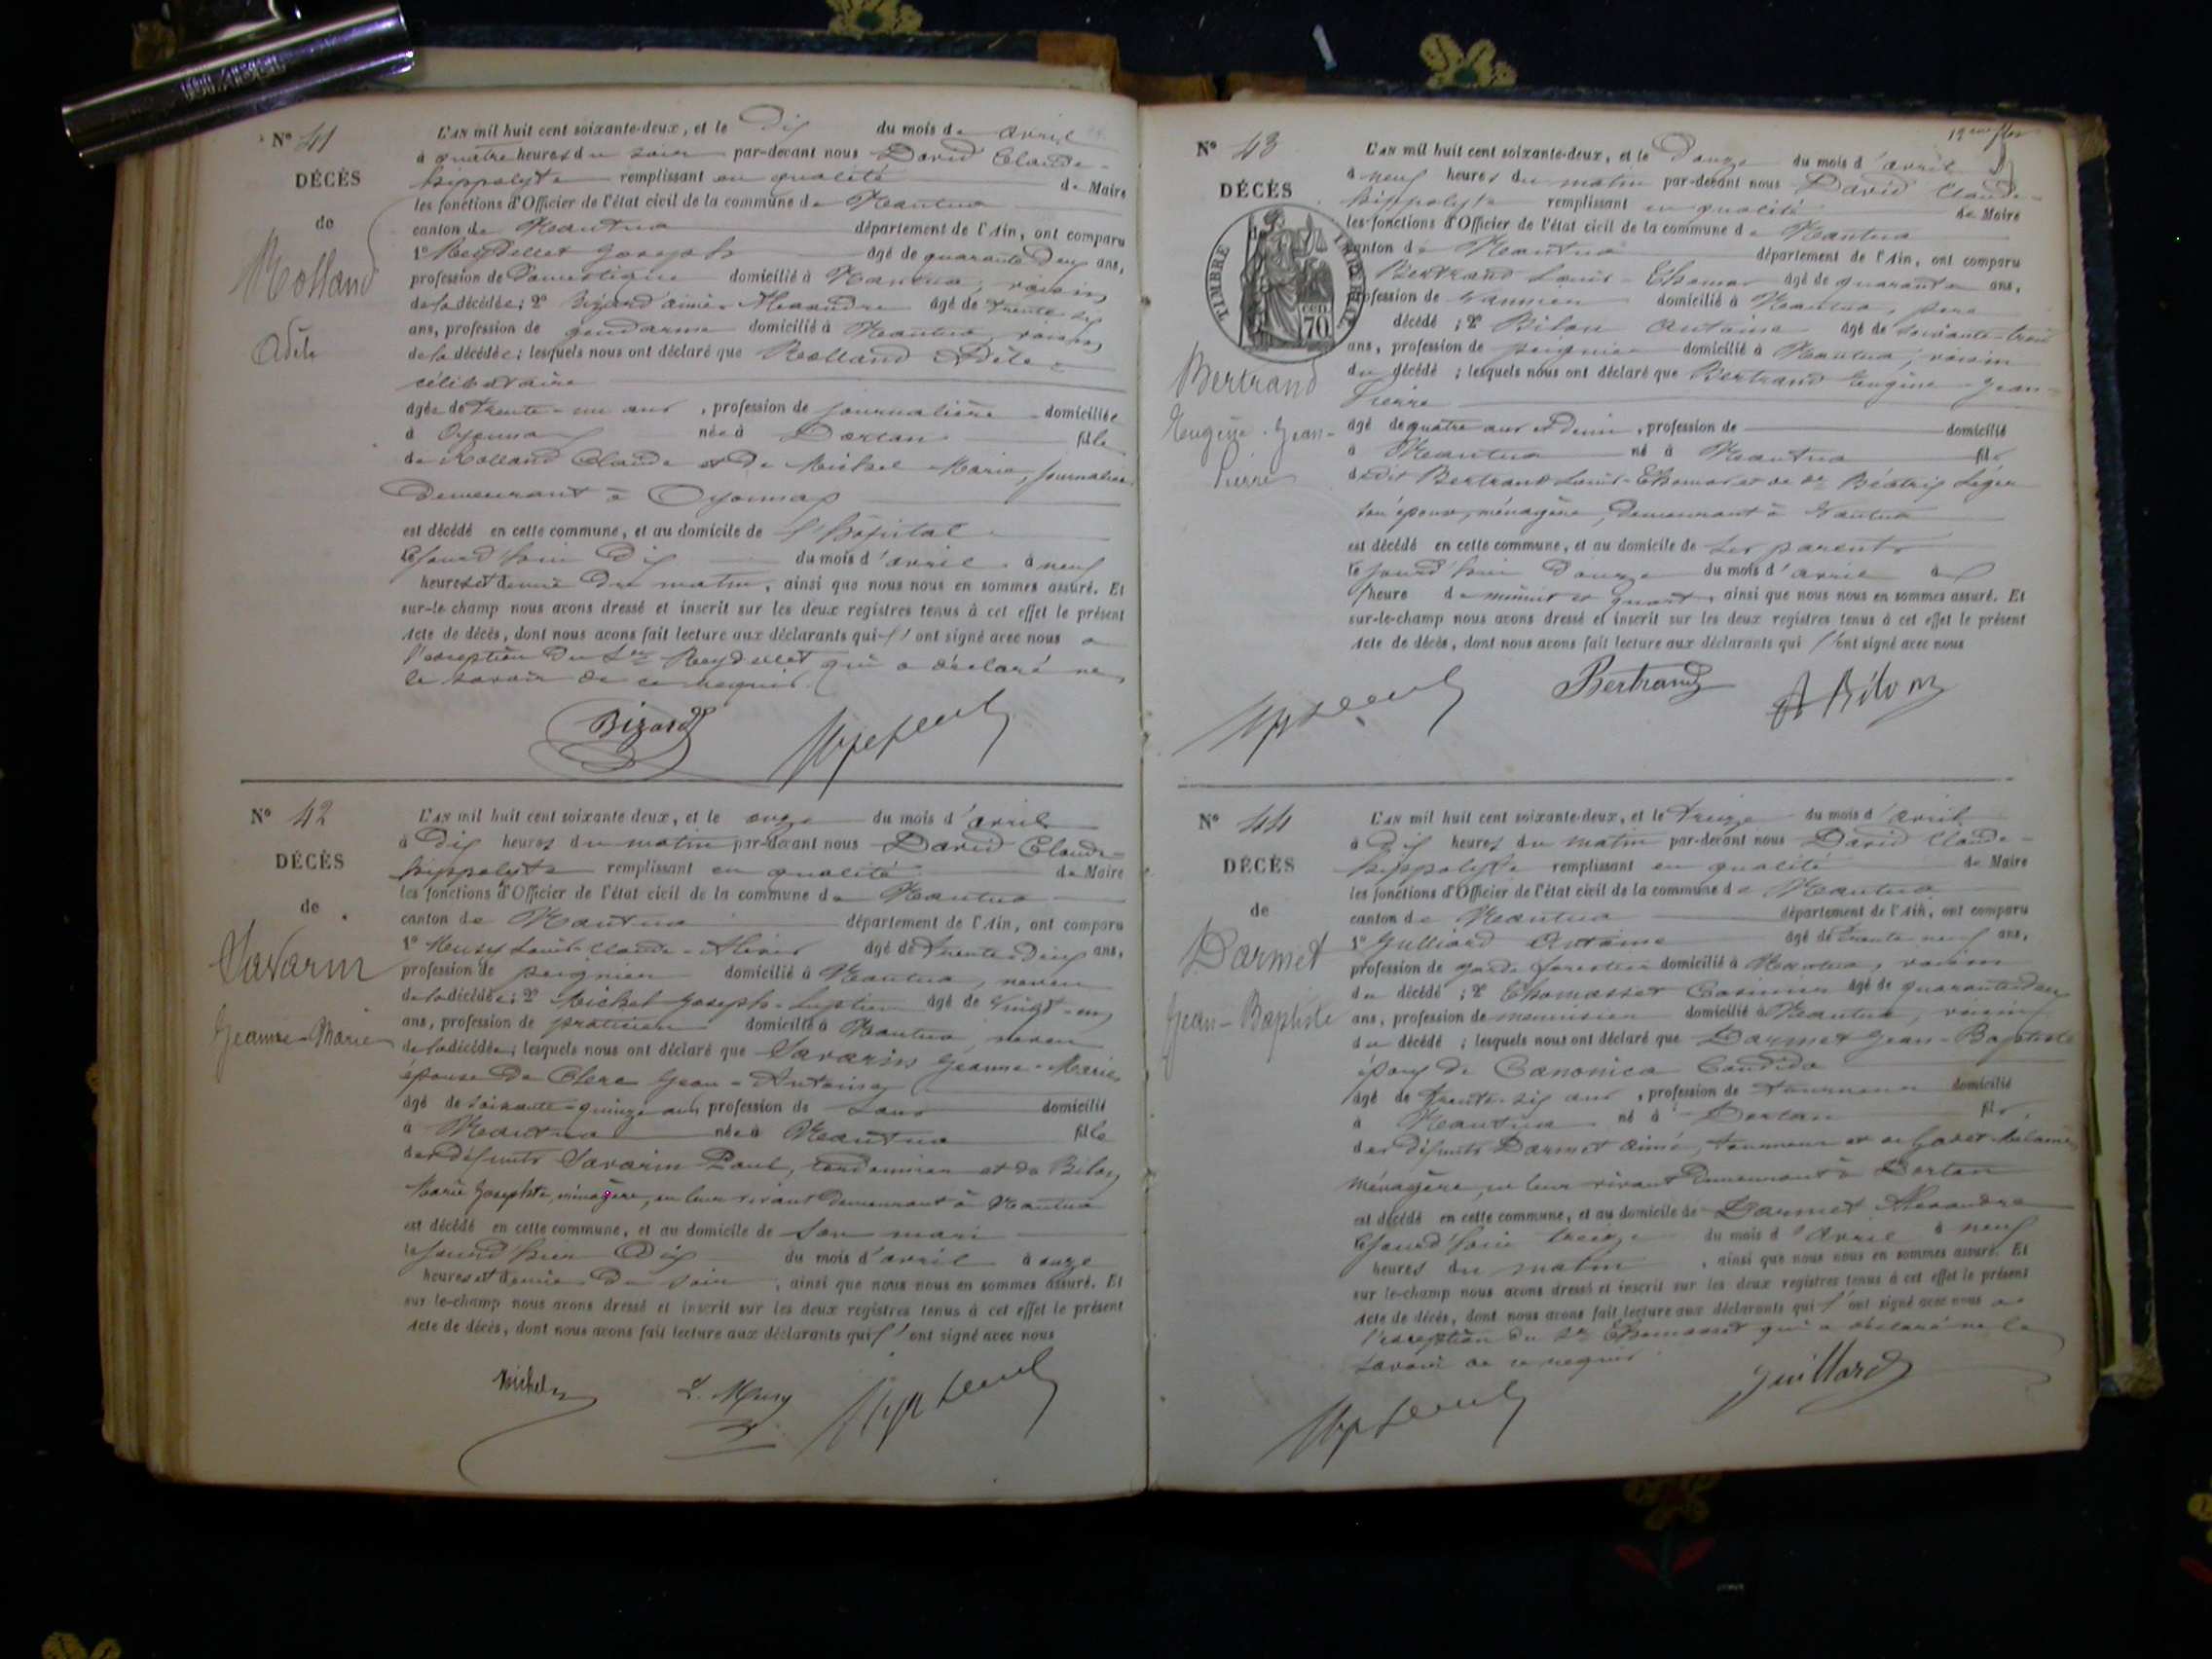 N° 41
DÉCÈS
de
Rolland
Adèle
L'AN mil huit cent soixante-deux, et le Dix du mois de avril
à quatre heures du soir par-devant nous David Claude-
hippolyte remplissant en qualité de Maire
les fonctions d'Officier de l'état civil de la commune de Nantua
canton de Nantua département de l'Ain, ont comparu
1° Reydellet Joseph âgé de quarante Deux ans,
profession de Domestique domicilié à Nantua, voisin
de la décédée; 2° Bizard aimé-Alexandre âgé de trente six
ans, profession de gendarme domicilié à Nantua, voisin
de la décédée; lesquels nous ont déclaré que Rolland Adèle
célibataire
âgée de trente-un ans, profession de journalière domiciliée
à Oyonnax née à Dortan fille
de Rolland Claude et de Michel Marie, journaliers
Demeurant à Oyonnax
est décédé en cette commune, et au domicile de l'hôpital
cejourd'hui Dix du mois d'avril à neuf
heures et demie du matin, ainsi que nous nous en sommes assuré. Et
sur-le-champ nous avons dressé et inscrit sur les deux registres tenus à cet effet le présent
Acte de décès, dont nous avons fait lecture aux déclarants qui l'ont signé avec nous a
l'exception du Sr Reydellet qui a déclaré ne
le savoir de ce requis.
Bizard
N° 42
DÉCÈS
de
Savarin
Jeanne-Marie
L'AN mil huit cent soixante-deux, et le onze du mois d'avril
à Dix heures du matin par-devant nous David Claude-
hippolyte remplissant en qualité de Maire
les fonctions d'Officier de l'état civil de la commune de Nantua
canton de Nantua département de l'Ain, ont comparu
1° Musy Louis-Claude- âgé de trente-Deux ans,
profession de peignier domicilié à Nantua, neveu
de la décédée; 2° Michel Joseph- âgé de vingt-un
ans, profession de praticien domicilié à Nantua, neveu
de la décédée; lesquels nous ont déclaré que Savarin Jeanne-Marie
épouse de Clerc Jean-Antoine
âgé de soixante-quinze ans profession de sans domicilié
à Nantua née à Nantua fille
des défunts Savarin Paul, cordonnier et de Bilon
Marie Josephte, ménagère, en leur vivant demeurant à Nantua
est décédé en cette commune, et au domicile de son mari
le jourd'hier Dix du mois d'avril à onze
heures et demie du soir, ainsi que nous nous en sommes assuré. Et
sur-le-champ nous avons dressé et inscrit sur les deux registres tenus à cet effet le présent
Acte de décès, dont nous avons fait lecture aux déclarants qui l'ont signé avec nous
Michel L. Musy
N° 43
DÉCÈS
de
TIMBRE IMPÉRIAL
70
Bertrand
Eugène-Jean-
Pierre
L'AN mil huit cent soixante-deux, et le Douze du mois d'avril
à neuf heures du matin par-devant nous David Claude-
hippolyte remplissant en qualité de Maire
les fonctions d'Officier de l'état civil de la commune de Nantua
canton de Nantua département de l'Ain, ont comparu
Bertrand Louis-Thomas âgé de quarante ans,
profession de vannier domicilié à Nantua, père
décédé; 2° Bilon Antoine âgé de soixante-trois
ans, profession de peignier domicilié à Nantua, voisin
du décédé; lesquels nous ont déclaré que Bertrand Eugène-Jean-
Pierre
âgé de quatre ans et demi, profession de domicilié
à Nantua né à Nantua fils
dudit Bertrand Louis-Thomas et de de Béatrix Léger
son épouse, ménagère, demeurant à Nantua
est décédé en cette commune, et au domicile de ses parents
cejourd'hui Douze du mois d'avril à
l'heure de minuit et quart, ainsi que nous nous en sommes assuré. Et
sur-le-champ nous avons dressé et inscrit sur les deux registres tenus à cet effet le présent
Acte de décès, dont nous avons fait lecture aux déclarants qui l'ont signé avec nous
Bertrand A Bilon
N° 44
DÉCÈS
de
Darmet
Jean-Baptiste
L'AN mil huit cent soixante-deux, et le treize du mois d'avril
à Dix heures du matin par-devant nous David Claude-
hippolyte remplissant en qualité de Maire
les fonctions d'Officier de l'état civil de la commune de Nantua
canton de Nantua département de l'Ain, ont comparu
1° Guilliard Antoine âgé de trente neuf ans,
profession de garde forestier domicilié à Nantua, voisin
du décédé; 2° Thomasset Casimir âgé de quarante deux
ans, profession de menuisier domicilié à Nantua, voisin
du décédé; lesquels nous ont déclaré que Darmet Jean-Baptiste
époux de Canonica Candida
âgé de trente-six ans, profession de tourneur domicilié
à Nantua né à Dortan fils
des défunts Darmet aimé, tourneur et de Melanie
ménagère, en leur vivant demeurant à Dortan
est décédé en cette commune, et au domicile de Darmet Alexandre
cejourd'hui treize du mois d'avril à neuf
heures du matin, ainsi que nous nous en sommes assuré. Et
sur-le-champ nous avons dressé et inscrit sur les deux registres tenus à cet effet le présent
Acte de décès, dont nous avons fait lecture aux déclarants qui l'ont signé avec nous a
l'exception du Sr Thomasset qui a déclaré ne le
savoir de ce requis.
Guillard